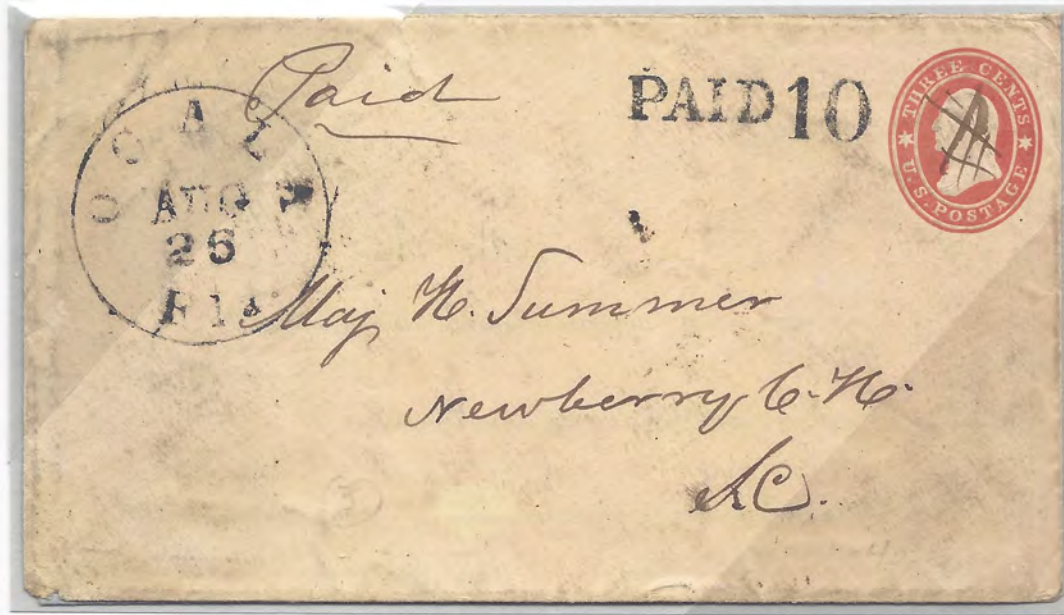 Paid
PAID 10
THREE CENTS
U.S. POSTAGE
OCALA
AUG
26
Fla
Maj H. Summer
Newberry C. H.
SC.
3